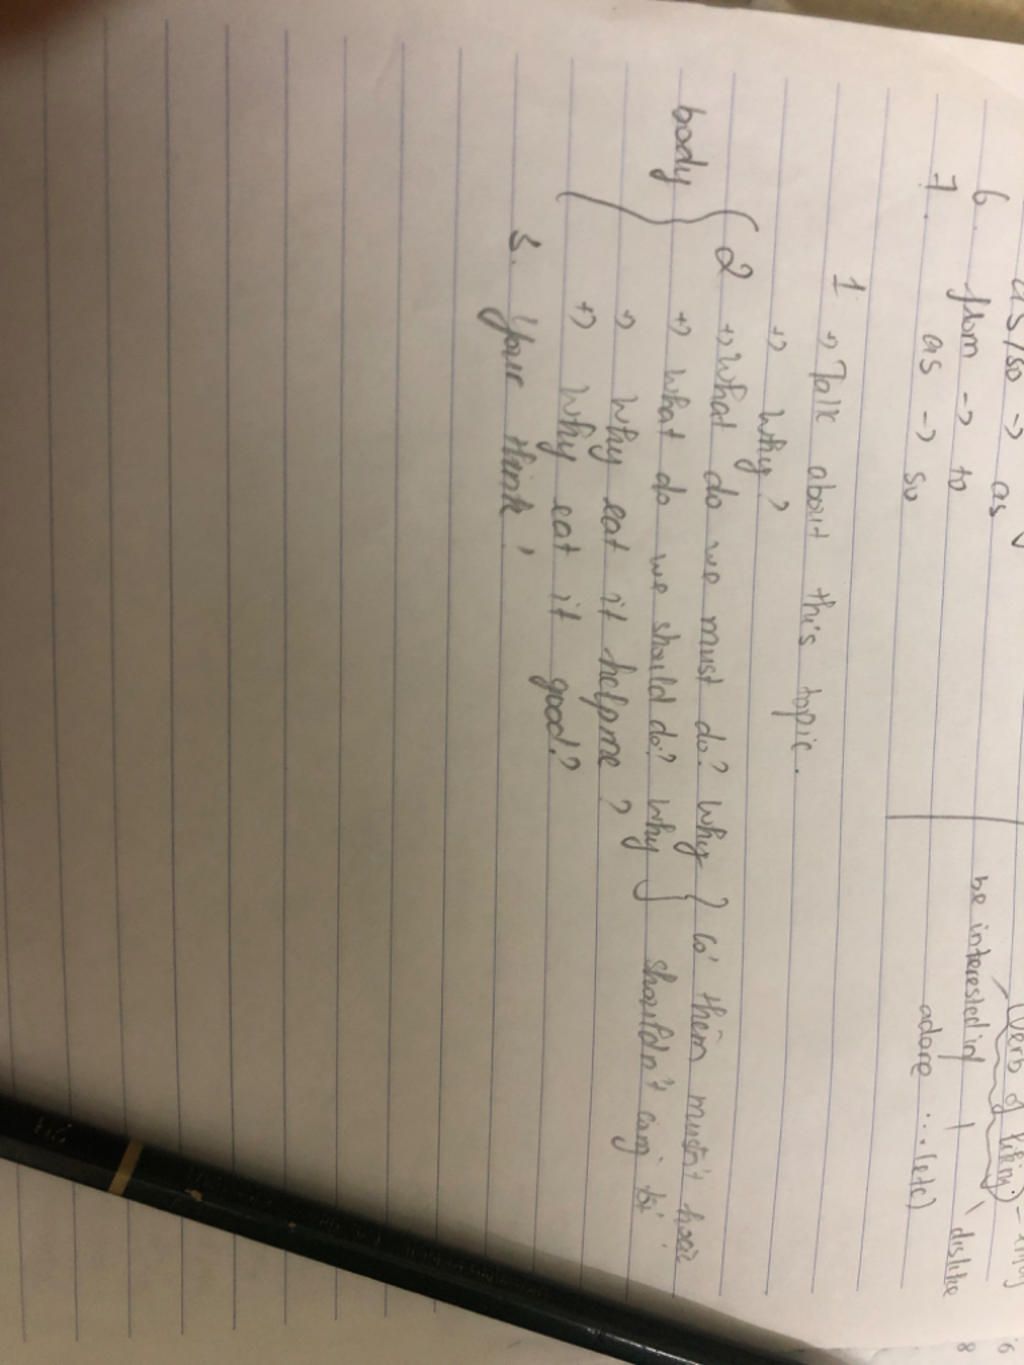 as/so -> as
6 from -> to
7. as -> so
(Verb of liking) -
be interested in / dislike
adore ... (etc)
1 -> Talk about this topic.
+) Why?
body { 2 +) What do we must do? Why } có thêm mustn't hoặc
+) What do we should do? Why } shouldn't cũng
-> Why eat it help me?
+) Why eat it good?
3. Your think!
6
8